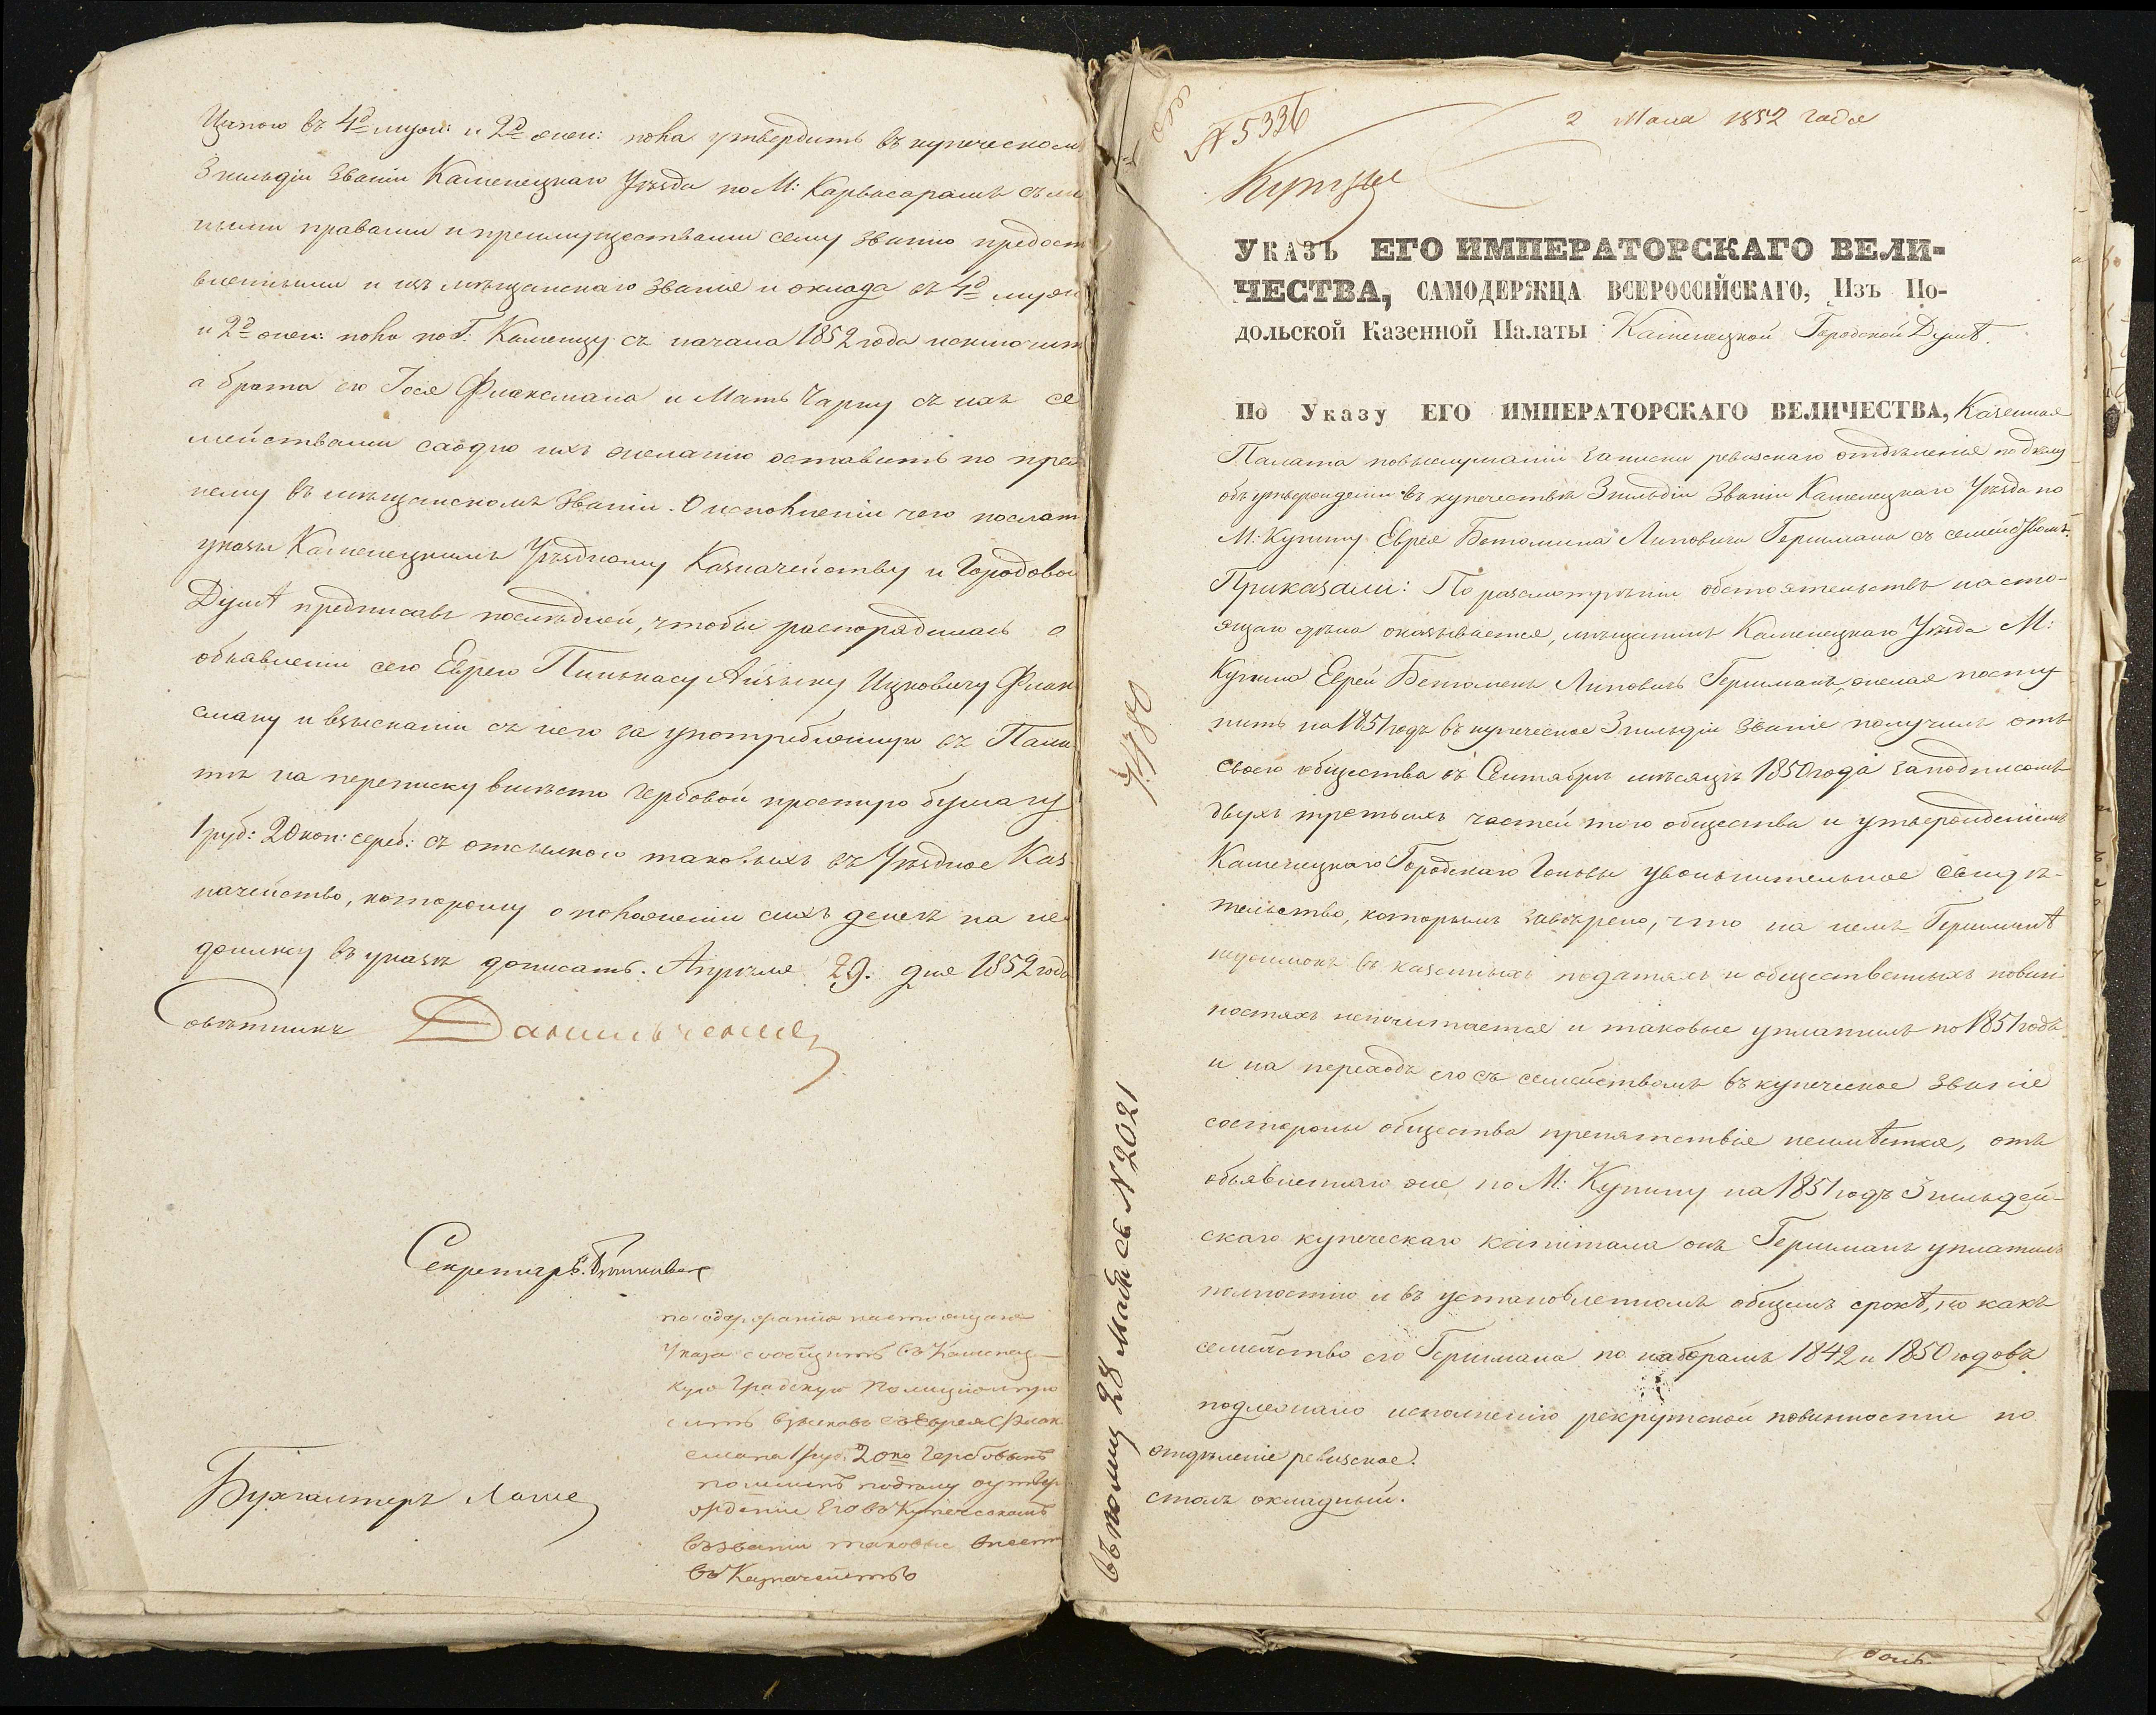 въ 4х муж: и 2х жен: пола утвердить въ купеческом
3 гильдіи званіи Каменецкаго Уѣзда по М: Карвасарамъ съ
ными правами и преимуществами сему званію предост
вленными и изъ мѣщанскаго званія и оклада въ 4х муж
и 2х жен: пола по Г: Каменцу съ начала 1852 года исключит
а брата его Іося Флаксмана и Мать Чарну съ ихъ се
мействами саодно ихъ желанію оставить по преж
нему въ мѣщанскомъ званіи. О исполненіи чего послат
указы Каменецкимъ Уѣздному Казначейству и Городовой
Думѣ предписавъ послѣдней, чтобы распорядилась о
объявленіи сего Еврею Пинькасу Айзыку Ицковичу Флак
сману и взысканіи съ него за употребленную въ Пала
тѣ на переписку вмѣсто гербовой простую бумагу
1 руб: 20 коп: сереб: съ отсылкою таковыхъ въ Уѣздное Каз
начейство, которому о положеніи сихъ денегъ на не
доимку въ указѣ дописать. Апрѣля 29. дня 1852 года
Совѣтникъ
Секретарь
указа сообщить въ Каменец
кую Градскую Полицію
взыскавъ съ Еврея Флак
смана 1 руб. 20 ко гербовыхъ
пошлинъ
жденіи его въ Купеческомъ
званіи таковые внести
въ Казначейство
Бухгалтеръ
№ 5336 2 Мая 1852 года
Купцы
Указъ ЕГО ИМПЕРАТОРСКАГО ВЕЛИ-
ЧЕСТВА, САМОДЕРЖЦА ВСЕРОССІЙСКАГО, Изъ По-
дольской Казенной Палаты Каменецкой Городской Думѣ.
По Указу ЕГО ИМПЕРАТОРСКАГО ВЕЛИЧЕСТВА, Казенная
Палата повыслушаніи записки ревизскаго отдѣленія по дѣлу
объ утвержденіи въ купечествѣ 3 гильдіи званіи Каменецкаго Уѣзда по
М: Купину Еврея Бетомина Липовича Гершмана съ семействомъ.
Приказали: По разсмотрѣніи обстоятельствъ насто-
ящаго дѣла оказывается, мѣщанинъ Каменецкаго Уѣзда М:
Купина Еврей Липовичъ Гершманъ, желая посту
пить на 1851 годъ въ купеческое 3 гильдіи званіе получилъ отъ
своего общества въ Сентябрѣ мѣсяцѣ 1850 года заподписомъ
двухъ третьихъ частей того общества и утвержденіемъ
Каменецкаго Городскаго Головы увольнительное свидѣ-
тельство, которымъ завѣрено, что на немъ Гершманѣ
недоимокъ въ казенныхъ податяхъ и общественныхъ повин
ностяхъ непочитается и таковые уплатилъ по 1851 годъ
и на переходъ его съ семействомъ въ купеческое званіе
состороны общества препятствія неимѣется, отъ
объявленнаго же по М: Купину на 1851 годъ 3 гильдей-
скаго купеческаго капитала онъ Гершманъ уплатилъ
полностію и въ установленномъ общемъ срокѣ, но какъ
семейство его Гершмана по наборамъ 1842 и 1850 годовъ
подлежало исполненію рекрутской повинности по
отдѣленіе ревизское.
столъ окладный.
28 Мая № 2021